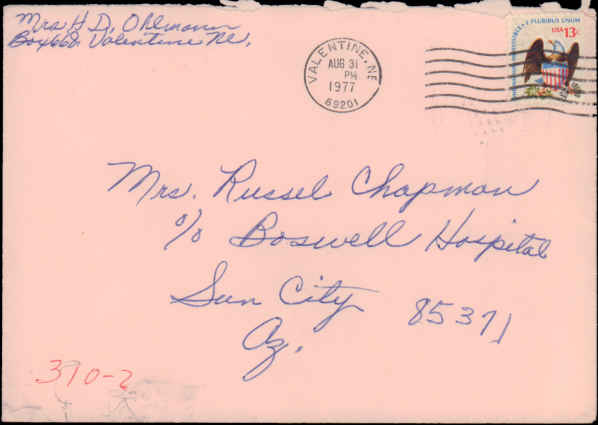 Mrs H D. Ohlmann
Box 668 Valentine Ne.
VALENTINE, NE
AUG 31
PM
1977
69201
E PLURIBUS UNUM
USA 13c
Mrs. Russel Chapman
% Boswell Hospital
Sun City 85371
Az.
390-2